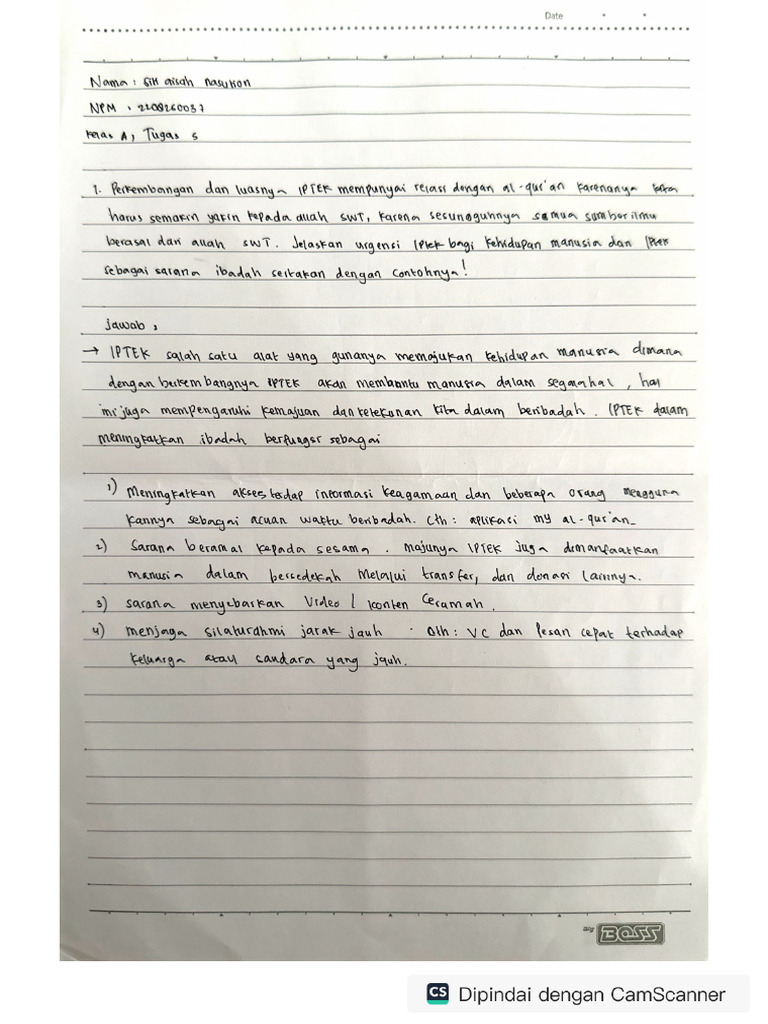 Date
Nama : Siti aisah nasution
NPM : 2208260037
Kelas A, Tugas 5
1. Perkembangan dan luasnya IPTEK mempunyai relasi dengan al-qur'an karenanya kita
harus semakin yakin kepada allah SWT, karena sesungguhnya semua sumber ilmu
berasal dari allah SWT. Jelaskan urgensi Iptek bagi kehidupan manusia dan Iptek
sebagai sarana ibadah sertakan dengan contohnya!
jawab :
→ IPTEK salah satu alat yang gunanya memajukan kehidupan manusia dimana
dengan berkembangnya IPTEK akan membantu manusia dalam segala hal, hal
ini juga mempengaruhi kemajuan dan ketekunan kita dalam beribadah. IPTEK dalam
meningkatkan ibadah berfungsi sebagai
1) Meningkatkan akses terdap informasi keagamaan dan beberapa orang mengguna
kannya sebagai acuan waktu beribadah. Cth : aplikasi my al-qur'an.
2) Sarana beramal kepada sesama. majunya IPTEK juga dimanfaatkan
manusia dalam bersedekah melalui transfer, dan donasi lainnya.
3) sarana menyebarkan Video / konten Ceramah.
4) menjaga silaturahmi jarak jauh. Cth : VC dan pesan cepat terhadap
keluarga atau saudara yang jauh.
Big BOSS
CS Dipindai dengan CamScanner